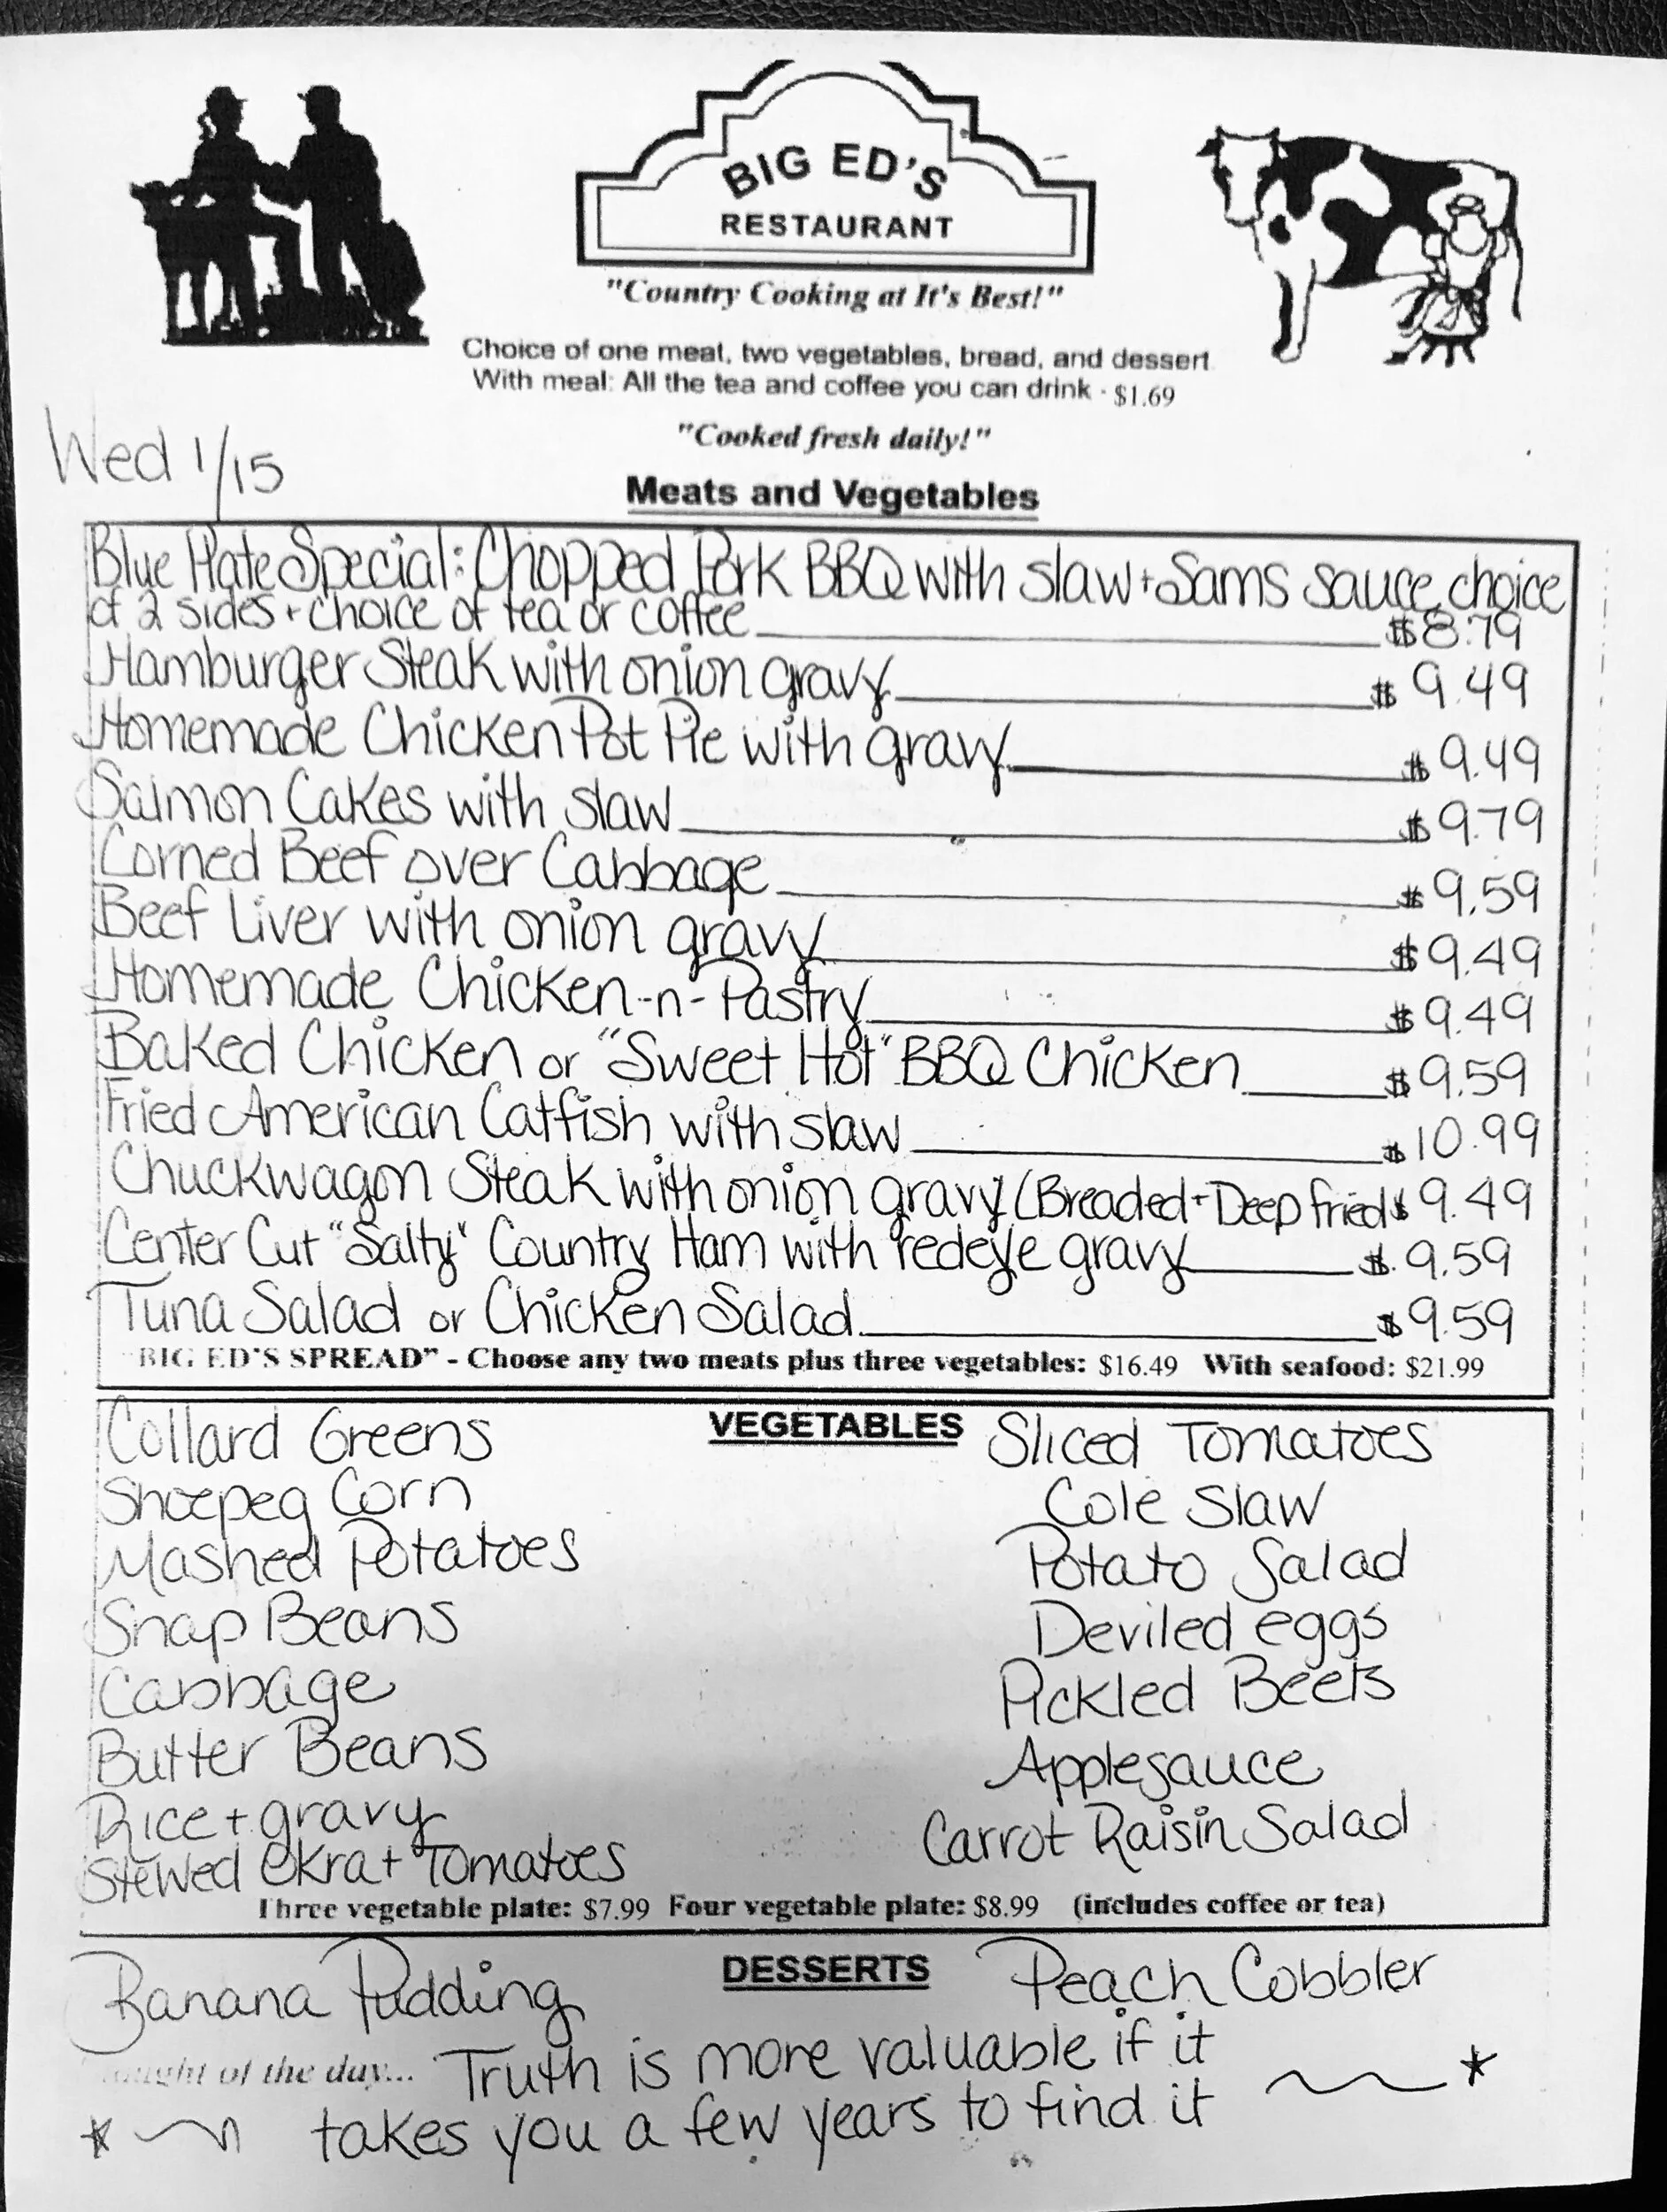 BIG ED'S
RESTAURANT
"Country Cooking at It's Best!"
Choice of one meat, two vegetables, bread, and dessert
With meal: All the tea and coffee you can drink - $1.69
"Cooked fresh daily!"
Wed 1/15
Meats and Vegetables
Blue Plate Special: Chopped Pork BBQ with slaw + Sams sauce, choice
of 2 sides + choice of tea or coffee $8.79
Hamburger Steak with onion gravy $9.49
Homemade Chicken Pot Pie with gravy $9.49
Salmon Cakes with slaw $9.79
Corned Beef over Cabbage $9.59
Beef Liver with onion gravy $9.49
Homemade Chicken-n-Pastry $9.49
Baked Chicken or "Sweet Hot" BBQ Chicken $9.59
Fried American Catfish with slaw $10.99
Chuckwagon Steak with onion gravy (Breaded + Deep fried $9.49
Center Cut "Salty" Country Ham with redeye gravy $9.59
Tuna Salad or Chicken Salad $9.59
"BIG ED'S SPREAD" - Choose any two meats plus three vegetables: $16.49 With seafood: $21.99
VEGETABLES
Collard Greens
Shoepeg Corn
Mashed Potatoes
Snap Beans
Cabbage
Butter Beans
Rice + gravy
Stewed Okra + Tomatoes
Sliced Tomatoes
Cole Slaw
Potato Salad
Deviled eggs
Pickled Beets
Applesauce
Carrot Raisin Salad
Three vegetable plate: $7.99 Four vegetable plate: $8.99 (includes coffee or tea)
DESSERTS
Banana Pudding
Peach Cobbler
of the day... Truth is more valuable if it
takes you a few years to find it